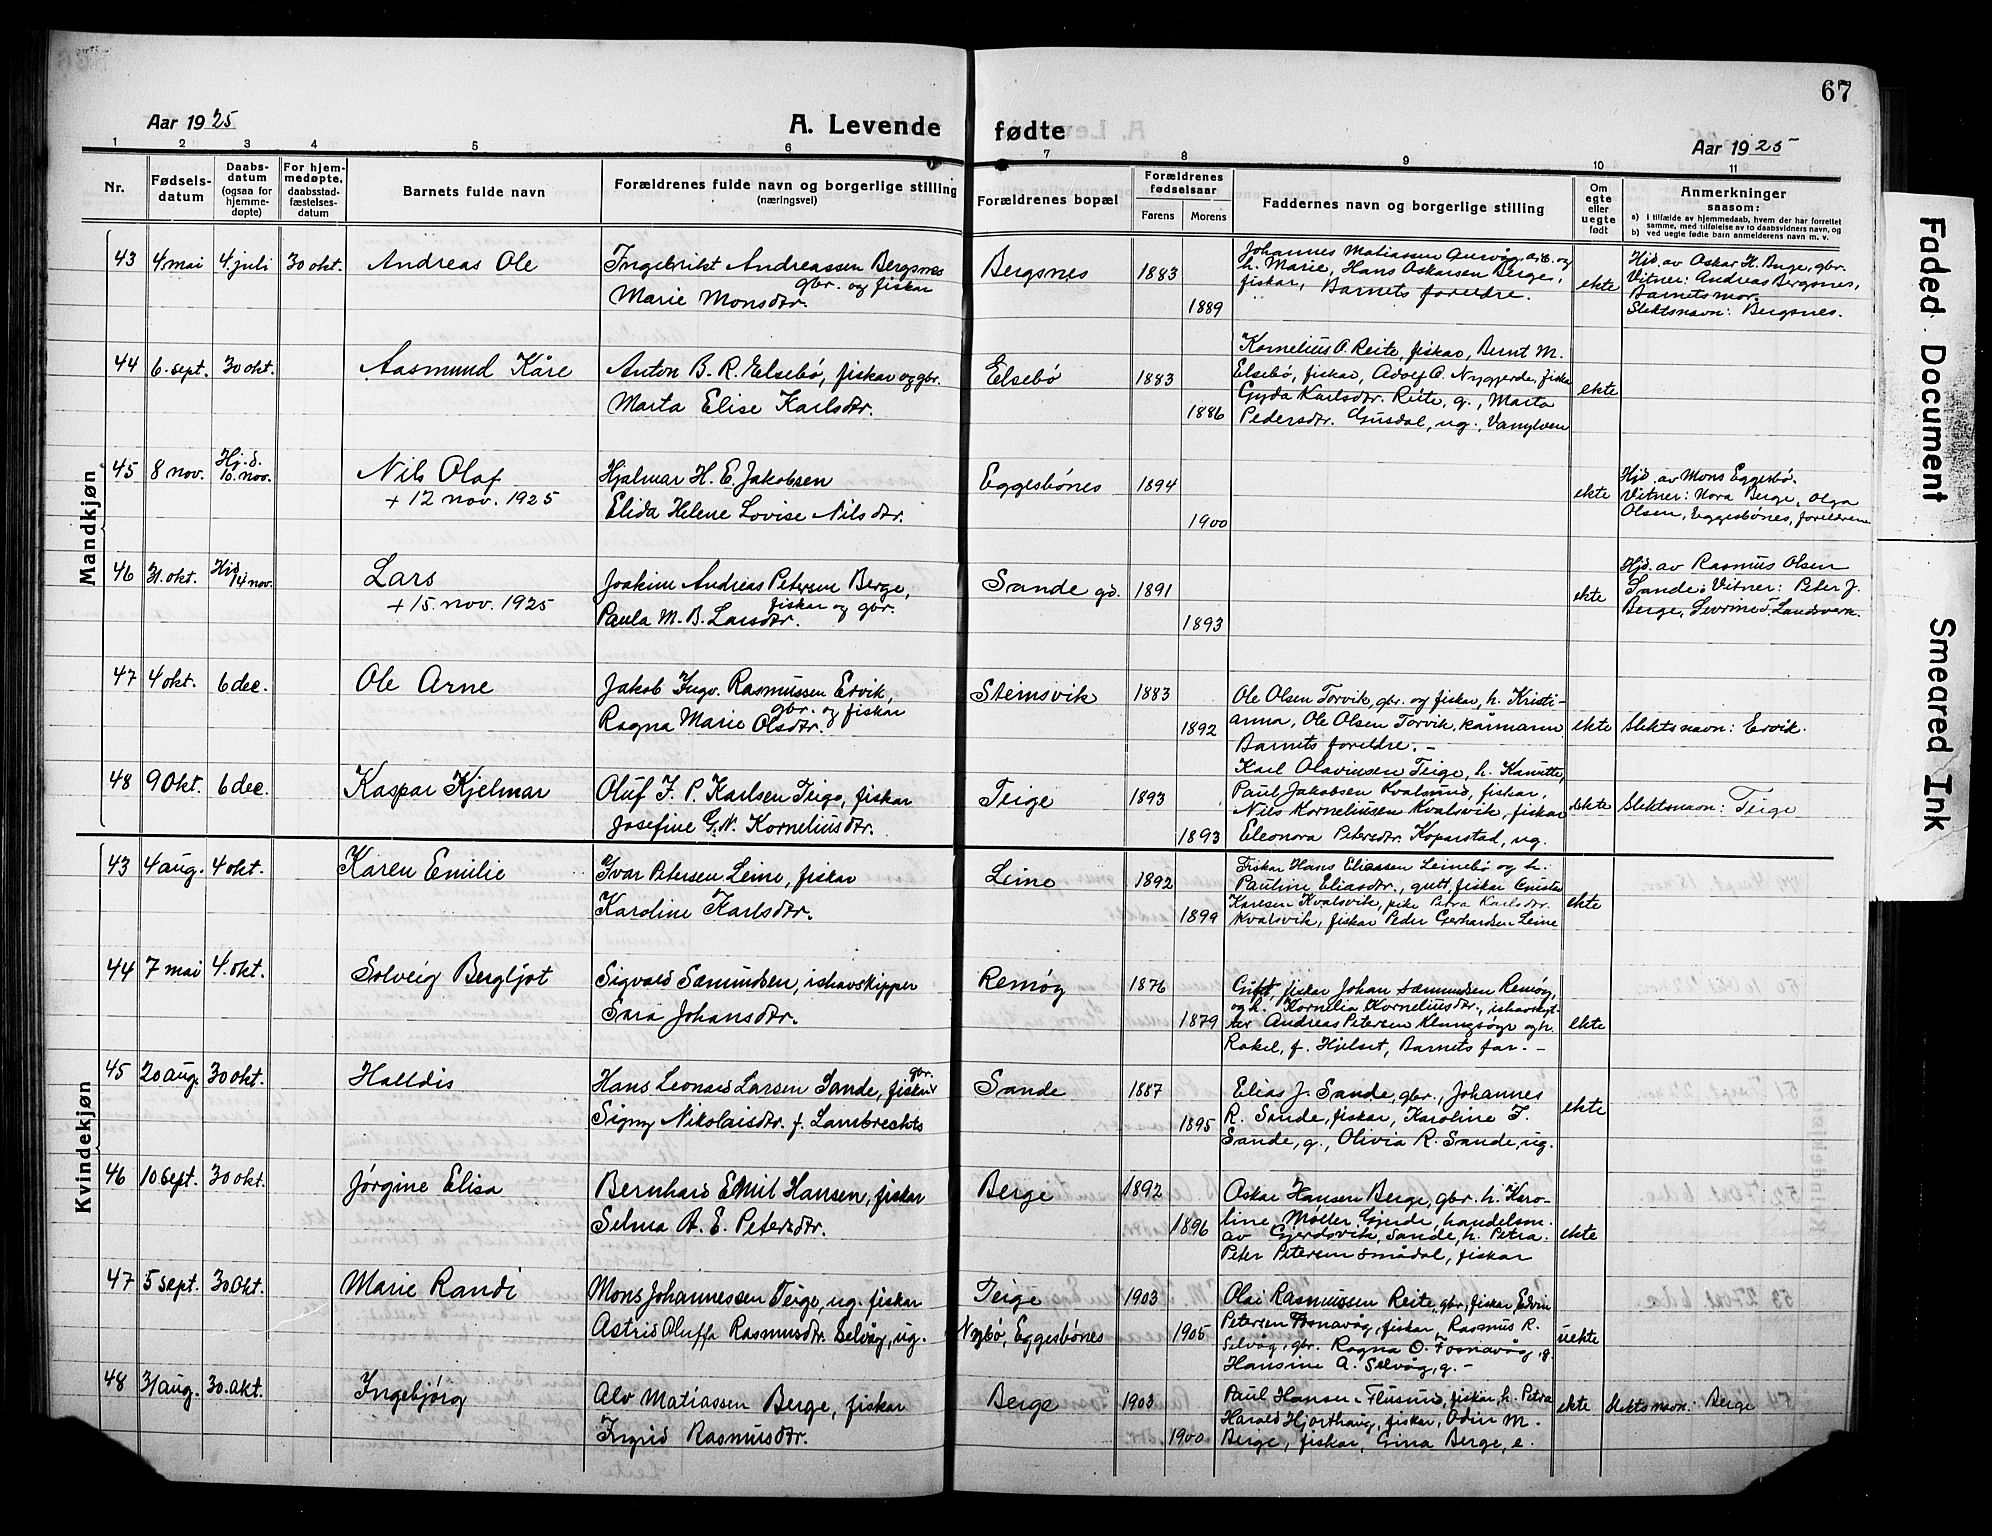 67
Aar 1925
A. Levende fødte
Aar 1925
1 2 3 4 5 6 7 8 9 10 11
Nr.
Fødsels-
datum
Daabs-
datum
(ogsaa for
hjemme-
døpte)
For hjem-
medøpte,
daabsstad-
fæstelses-
datum
Barnets fulde navn
Forældrenes fulde navn og borgerlige stilling
(næringsvei)
Forældrenes bopæl
Forældrenes
fødselsaar
Farens Morens
Faddernes navn og borgerlige stilling
Om
egte
eller
uegte
født
Anmerkninger
saasom:
a) i tilfælde av hjemmedaab, hvem der har forrettet
samme, med tilføielse av to daabsvidners navn, og
b) ved uegte fødte barn anmelderens navn m. v.
Mandkjøn
43 4 mai 4 juli 30 okt. Andreas Ole
Ingebrikt Andreassen Bergsnes
gbr. og fiskar
Marie Monsdtr.
Bergsnes 1883
1889
Johannes Matiassen
h. Marie, Hans Oskarsen Berge,
fiskar, Barnets foreldre.
ekte
Hjd. av Oskar H. Berge, gbr.
Vitner: Andreas Bergsnes,
Barnets mor.
Slektsnavn: Bergsnes.
44 6. sept. 30 okt. Aasmund Kåre
Anton B. R. Elsebø, fiskar og gbr.
Marta Elise Karlsdtr.
Elsebø 1883
1886
Kornelius A. Reite, fiskar, Bernt M.
Elsebø, fiskar, Adolf A. Nygjerde, fiskar
Gyda Karlsdtr. Reite, g., Marta
Pedersdtr. Gusdal, ug., Vanylven
ekte
45 8 nov. Hj.d. 10. nov. Nils Olaf
+ 12 nov. 1925
Hjalmar H. E. Jakobsen
Elida Helene Lovise Nilsdtr.
Eggesbönes 1894
1900
ekte
Hjd. av Mons Eggesbø.
Vitner: Nora Berge, Olga
Olsen, Eggesbönes, foreldrene
46 31. okt. Hjd. 14 nov. Lars
+ 15 nov. 1925
Joakim Andreas Petersen Berge,
fiskar og gbr.
Paula M. B. Larsdtr.
Sande gd. 1891
1893
ekte
Hjd. av Rasmus Olsen
Sande. Vitner: Peter J.
Berge, Landsverk.
47 4 okt. 6 dec. Ole Arne
Jakob Ingv. Rasmussen Ervik,
gbr. og fiskar
Ragna Marie Olsdtr.
Steinsvik 1883
1892
Ole Olsen Torvik, gbr. og fiskar, h. Kristi-
anna, Ole Olsen Torvik, kårmann
Barnets foreldre. -
ekte
Slektsnavn: Ervik.
48 9 Okt. 6 dec. Kaspar Kjelmar
Oluf I. P. Karlsen Teige, fiskar
Josefine G. N. Korneliusdtr.
Teige 1893
1893
Karl Olavinsen Teige, h. Kanutte,
Paul Jakobsen Kvalsund, fiskar,
Nils Korneliussen Kvalsvik, fiskar
Eleonora Petersdtr. Koparstad, ug.
ekte
Slektsnavn: Teige
Kvindekjøn
43 4 aug. 4 okt. Karen Emilie
Ivar Petersen Leine, fiskar
Karoline Karlsdtr.
Leine 1892
1899
Fiskar Hans Eliassen Leinebø og h.
Pauline Eliasdtr., gutt, fiskar
Karlsen Kvalsvik, pike Petra Karlsdtr.
Kvalsvik, fiskar Peder Gerhardsen Leine
ekte
44 7 mai 4. okt. Solveig Bergljot
Sigvald Sæmundsen, ishavskipper
Sara Johansdtr.
Remøy 1876
1879
Gift, fiskar Johan Sæmundsen Remøy,
og h. Kornelia Korneliusdtr., ishavskyt-
ter Andreas Petersen Klungsøyr og h.
Rakel, f. Hjelset, Barnets far. -
ekte
45 20 aug. 30 okt. Halldis
Hans Leonard Larsen Sande, fiskar gbr.
Signy Nikolaisdtr. f. Lambrechts
Sande 1887
1895
Elias J. Sande, gbr., Johannes
R. Sande, fiskar, Karoline I.
Sande, g., Olivia R. Sande, ug.
ekte
46 10 sept. 30 okt. Jørgine Elisa
Bernhard Emil Hansen, fiskar
Selma A. E. Petersdtr.
Berge 1892
1896
Oskar Hansen Berge, gbr. h. Karo-
line, Møller Gjerde, handelsm.
av Gjerdsvik, Sande, h. Petra.
Peter Petersen Smådal, fiskar
ekte
47 5 sept. 30 Okt. Marie Randi
Mons Johannessen Teige, ug. fiskar
Astrid Oluffa Rasmusdtr. Selvåg, ug.
Teige 1903
Nybø, Eggesbönes 1905
Olai Rasmussen Reite, gbr, fiskar, Edvin
Petersen Fosnavåg, fiskar, Rasmus R.
Selvåg, gbr. Ragna O. Fosnavåg, g.
Hansine A. Selvåg, g. -
uekte
48 31 aug. 30. okt. Ingebjørg
Alv Matiassen Berge, fiskar
Ingrid Rasmusdtr.
Berge 1903
1900
Paul Hansen Flusund, fiskar, h. Petra
Harald Hjorthaug, fiskar, Odin M.
Berge, fiskar, Gina Berge, e.
ekte
Slektsnavn: Berge
Faded Document
Smeared Ink